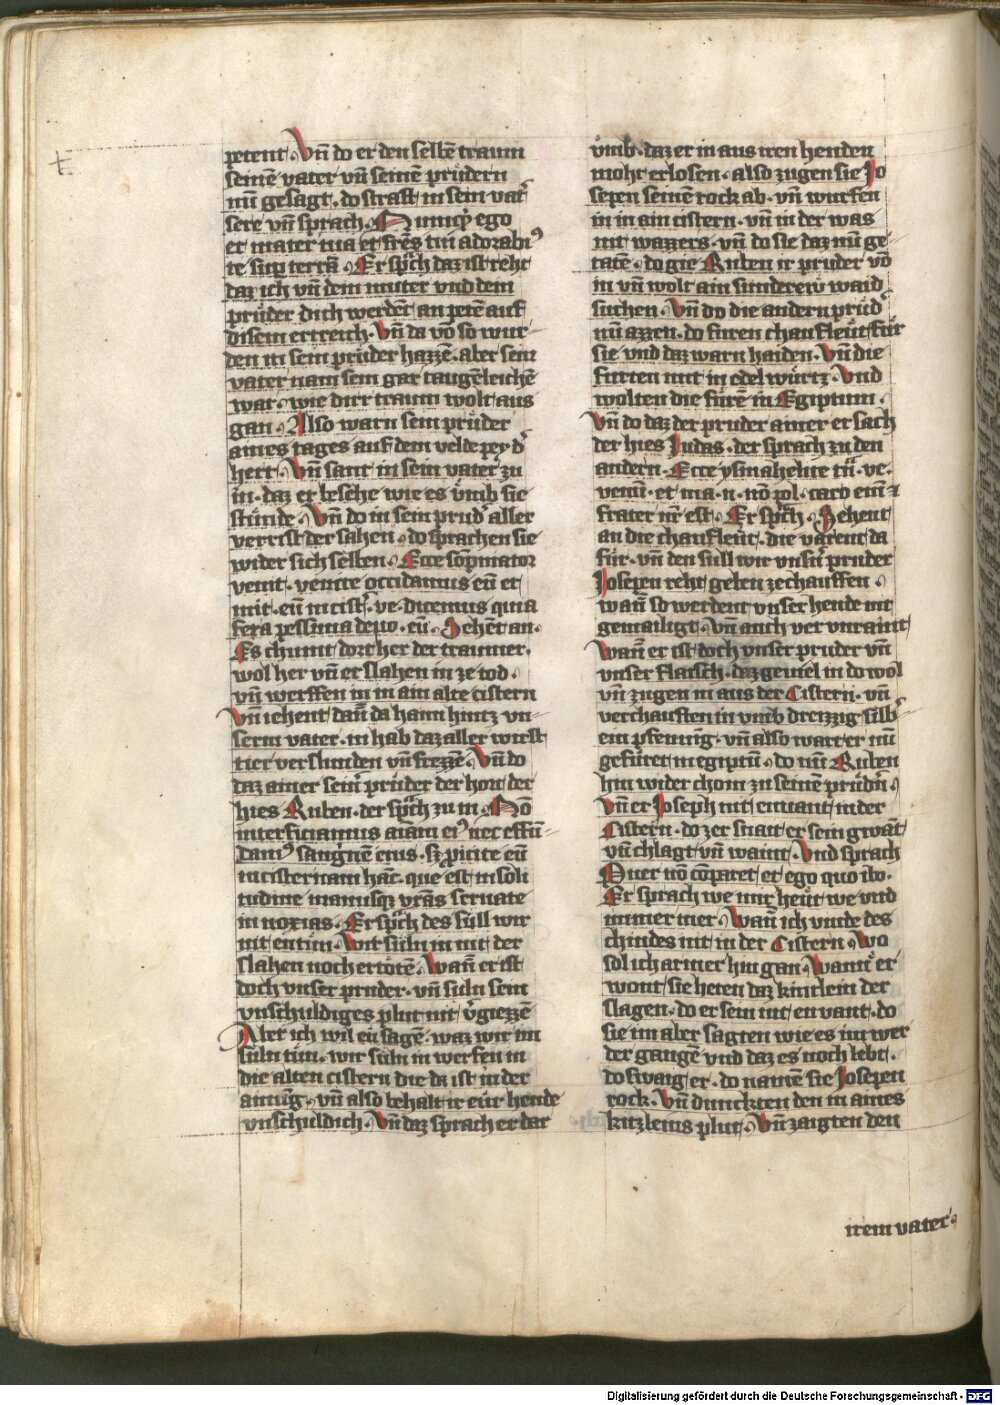 petent. Vn̄ do er den selbē traum
seinē vater vn̄ seinē prüdern
nu gesagt. do strafft in sein vat͛
sere vn̄ sprach. Numq̄ ego
et mater tua et fr̄es tui adorabi᷒
te sup terrā. Er sp̄ch daz ist reht
daz ich vn̄ dein muter vnd dein
prüder dich werdēt an petē auf
disem ertreich. Vn̄ da vō so wur-
den in sein prüder hazzē. aber sein
vater nam sein gar taugēleichē
war. wie dirr traum wolt aus
gan. Also warn sein prüder
aines tages auf dem velde pey d͛
hert. Vn̄ sant in sein vater zu
in. daz er besche wie es vmb sie
stünde. Vn̄ do in sein prud͛ aller
verrist der sahen. do sprachen sie
wider sich selben. Ecce sōpniator
venit. venite occidamus eū et
mit. eū in cist͛. ve. dicemus quia
fera pessima depo. eū. Sehēt an.
Es chumt dort her der traumer.
wol her vn̄ er slahen in ze tod.
vn̄ werffen in in ain alte cistern
Vn̄ iehent dan̄ da haim hintz vn-
serm vater. in hab daz aller wirst
tier verslunden vn̄ frezzē. Vn̄ do
daz ainer sein͛ prüder der hort der
hies Ruben. der sp̄ch zu in. Nō
interficiamus aīam ei᷒ nec effūn-
dam᷒ sangnēm eius. sz p̄icite eū
in cisternam hāc. que est in soli
tudine manusqz vrās seruate
in noxias. Er sp̄ch des süll wir
nit entun. Wir süln in nit der
slahen noch ertötē. Wan̄ er ist
doch vnser pruder. vn̄ suln sein
vnschuldiges plut nit v͛giezzē
Aber ich wil eü sagē. waz wir im
süln tun. wir süln in werfen in
die alten cistern die da ist in der
ainüg. vn̄ also behalt ir eür hende
vnschuldich. Vn̄ daz sprach er dar
vmb. daz er in aus iren henden
moht erlosen. also zugen sie Jo
sepen seinē rock ab. vn̄ wurfen
in in ain cistern. vn̄ in der was
nit wazzers. vn̄ do sie daz nu ge
tatē. do gie Ruben ir pruder vō
in vn̄ wolt ain sunderew waid
suchen. Vn̄ do die andern prüd͛
nu azzen. do füren chaufleüt für
sie vnd daz warn haiden. Vn̄ die
furten mit in edel würtz. Vnd
wolten die fürē in Egiptum.
Vn̄ do daz der pruder ainer er sach
der hies Judas. der sprach zu den
andern. Ecce ysmahelite trn̄. ve.
veniū. et ma. n. nō pol. caro enī ⁊
frater nr̄ est. Er sp̄ch. Sehent
an die chaufleüt. die varent da
für. vn̄ den süll wir vnsrn̄ pruder
Josepen reht geben zechauffen.
wan̄ so werdent vnser hende nit
gemailigt. Vn̄ auch ver vnraint
Wan̄ er ist doch vnser pruder vn̄
vnser flaisch. daz geuiel in do wol
vn̄ zugen in aus der Cistern. vn̄
verchauften in vmb dreizzig silb͛-
ein pfenning. vn̄ also wart er nu
gefüret in egiptū. do nu Ruben
hin wider chom zu seinē prüdn̄.
Vn̄ er Joseph nit envant in der
Cistern. do zer strait er sein gwāt
vn̄ chlagt vn̄ waint. Vnd sprach
Puer nō cōparet et ego quo ibo.
Er sprach we mir heüt we vnd
immer mer. Wan̄ ich vinde des
chindes nit in der Cistern. Wo
sol ich armer hin gan. Wann er
wont sie heten daz kintlein der
slagen. do er sein nit en vant. do
sie im aber sagten wie es im wer
der gangē vnd daz es noch lebt.
do swaig er. do namē sie Josepen
rock. Vn̄ dunckten den in aines
kitzleins plut. Vn̄ zaigten den
irem vater.
Digitalisierung gefördert durch die Deutsche Forschungsgemeinschaft - DFG